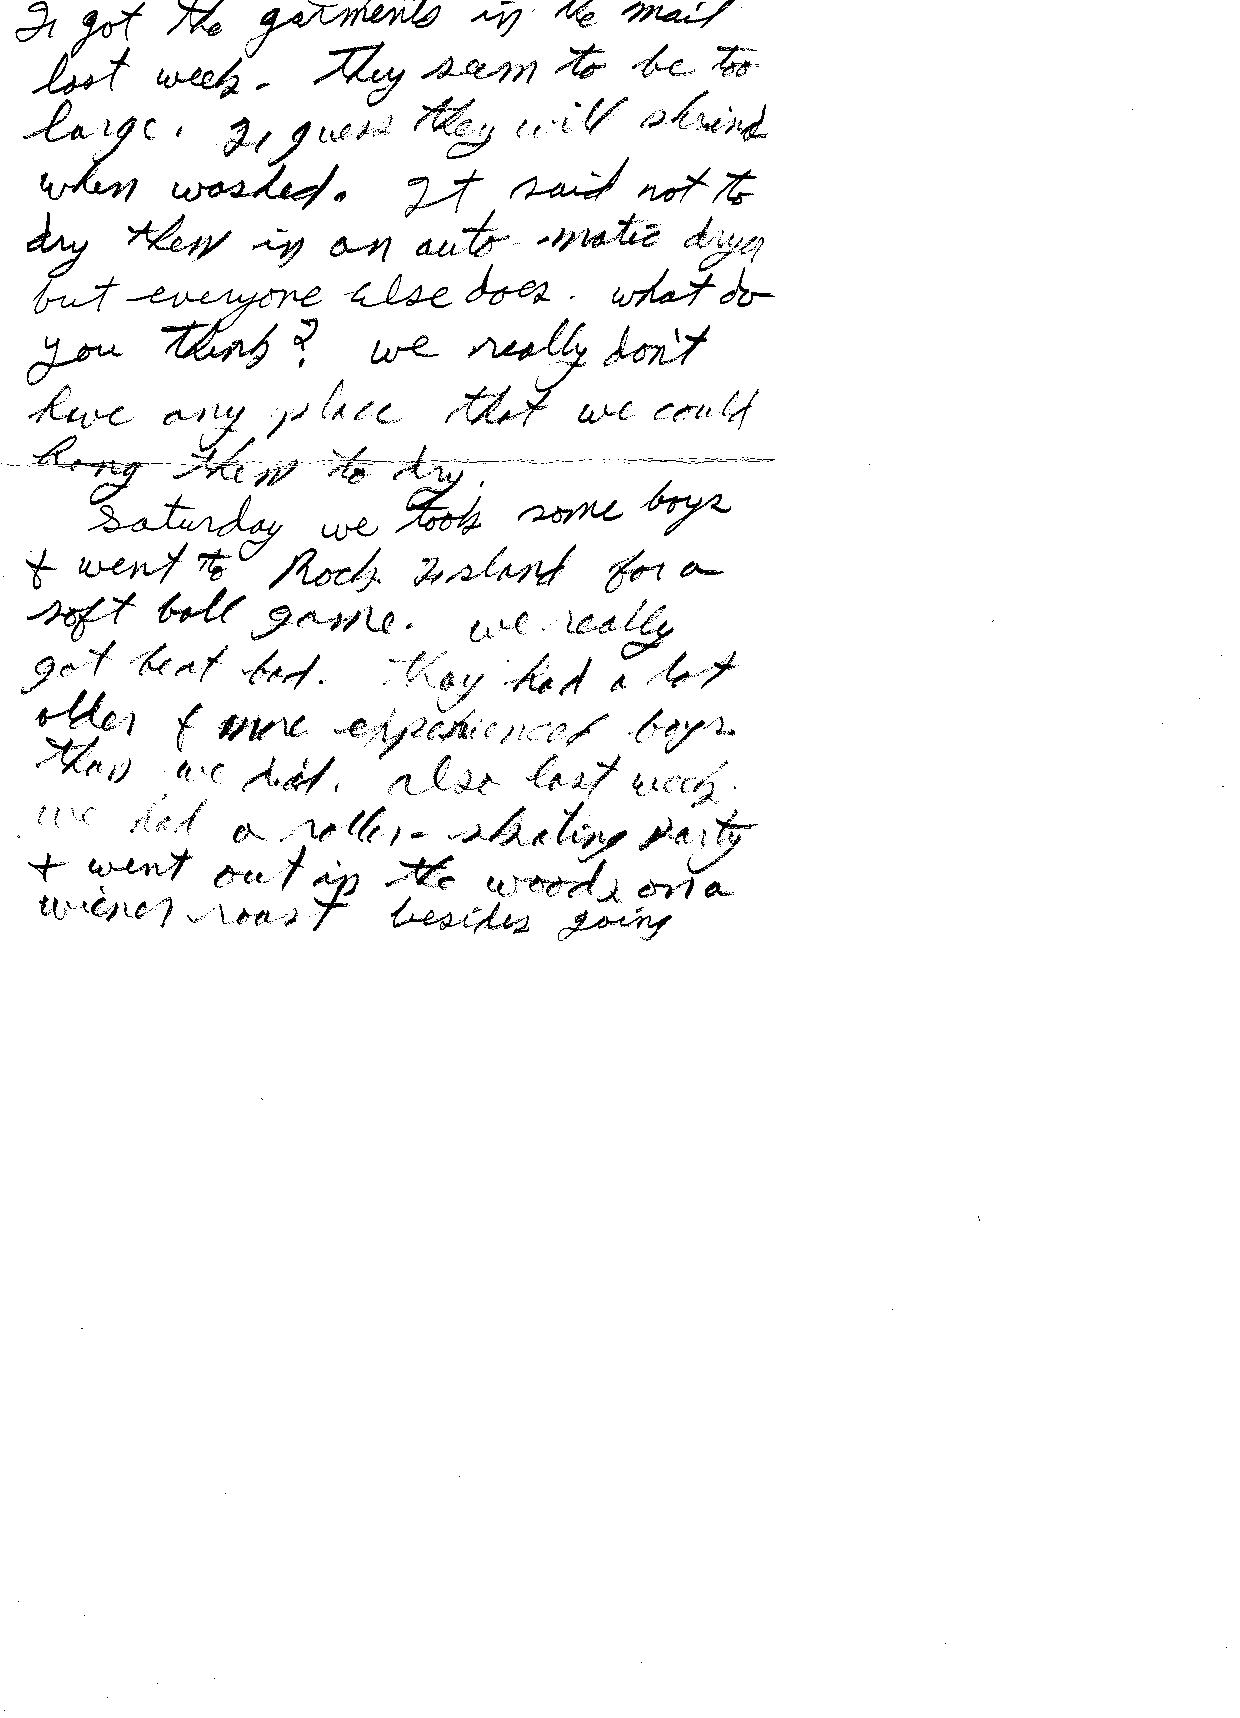 I got the garments in the mail
last week. They seem to be too
large. I guess they will shrink
when washed. It said not to
dry them in an auto-matic dryer
but everyone else does. what do
you think? we really don't
have any place that we could
hang them to dry.
Saturday we took some boys
& went to Rock Island for a
soft ball game. we really
got beat bad. They had a lot
older & more experienced boys
than we did. Also last week
we had a roller-skating party
& went out in the woods on a
wiener roast besides going